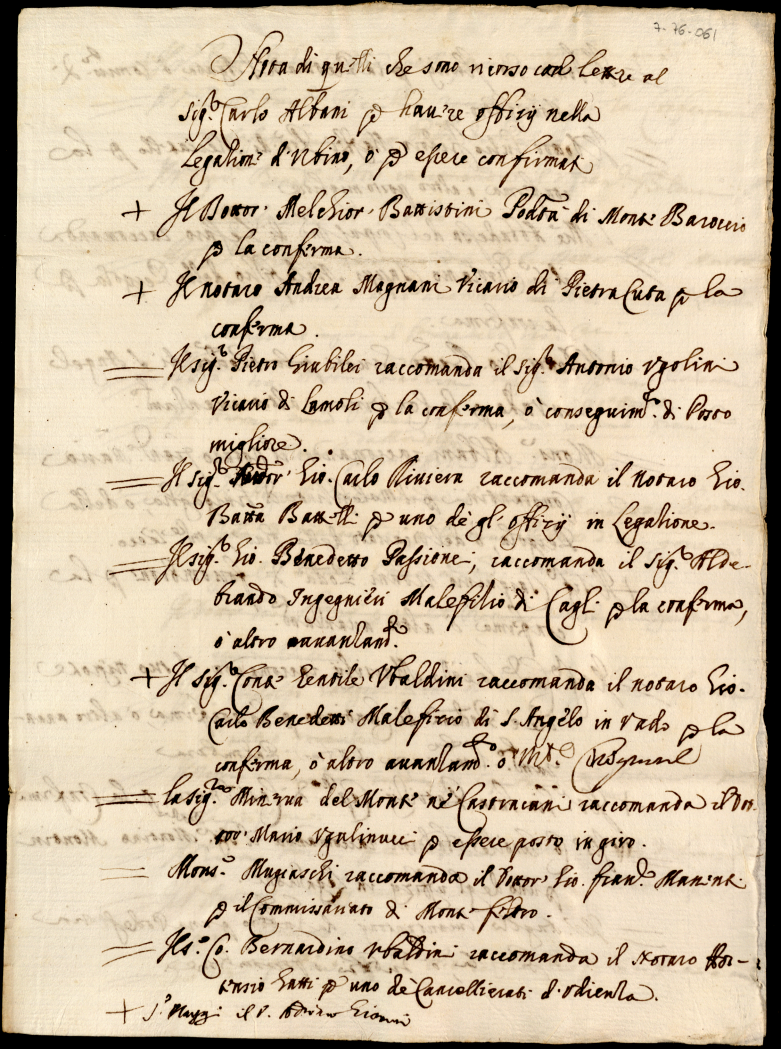 7-76-061
Nota di quelli che sono ricorso con lettere al
Sig.r Carlo Albani p hauere offizij nella
Legatione d'Vrbino, ò p essere confirmati
+ Il Dottor Melchior Battistini Podtà di Monte Baroccio
p la conferma.
+ Il notaro Andrea Magnani Vicario di Pietra Cuta p la
conferma.
= Il sig.r Pietro Giubilei raccomanda il Sig.r Antonio Vgolini
Vicario di Lamoli p la conferma, ò conseguim.to di Posto
migliore.
= Il sig.r Gio. Carlo Riviera raccomanda il Notaro Gio.
Batta Battelli p uno de gl'offizij in Legatione.
= Il sig.r Gio. Benedetto Passionei, raccomanda il Sig.r Alde-
brando Ingegnieri Malefitio di Cagli p la conferma,
ò altro auanzam.to
+ Il Sig.r Conte Gentile Vbaldini raccomanda il notaro Gio.
Carlo Benedetti Maleficio di S. Angelo in Vado p la
conferma, ò altro auanzam.to ò
= La Sig.ra Minerua del Monte ne Castracani raccomanda il Dot-
tor Mario Vgolinucci p essere posto in giro.
= Mons.r Mugiaschi raccomanda il Dottor Gio. Fran.co Manenti
p il Commissariato di Monte feltro.
= Il S.r Co. Bernardino Vbaldini raccomanda il Notaro Hor-
tensio Gatti p uno de Cancellierati d'Vdienza.
+ S.r il